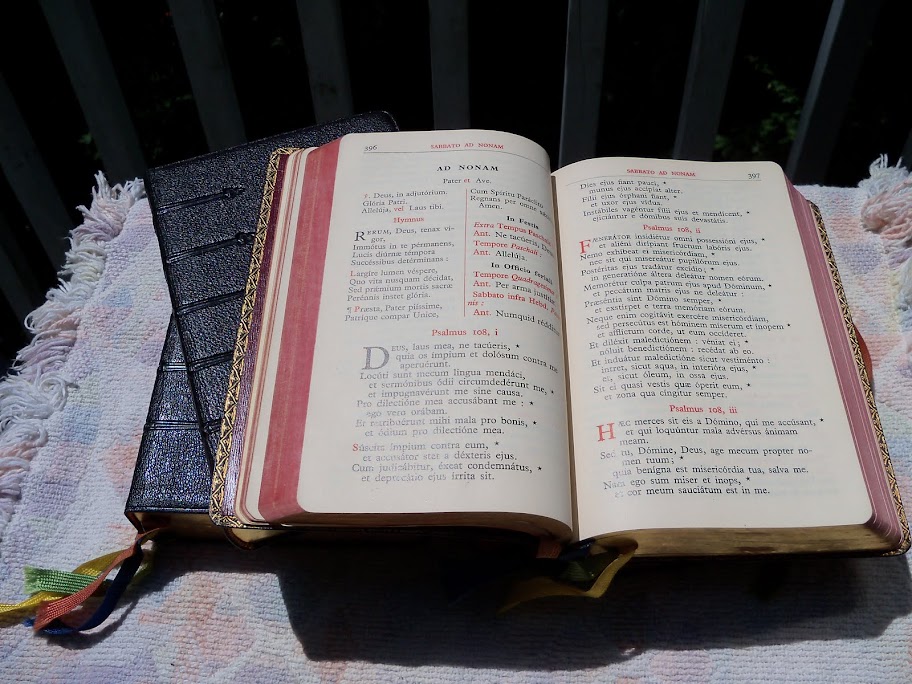 396
SABBATO AD NONAM
AD NONAM
Pater et Ave.
℣. Deus, in adjutórium.
Glória Patri.
Allelúja, vel Laus tibi.
Hymnus
RERUM, Deus, tenax vi-
gor,
Immótus in te pérmanens,
Lucis diúrnæ témpora
Succéssibus detérminans:
Largíre lumen véspere,
Quo vita nusquam décidat,
Sed præmium mortis sacræ
Perénnis instet glória.
¶ Præsta, Pater piíssime,
Patríque compar Unice,
Cum Spíritu Paráclito
Regnans per omne
Amen.
In Festis
Extra Tempus Paschale
Ant. Ne tacúeris, Deus
Tempore Paschali:
Ant. Allelúja.
In Officio feriali
Tempore Quadragesimæ
Ant. Per arma justítiæ
Sabbato infra Hebd.
nis:
Ant. Numquid rédditur
Psalmus 108, i
DEUS, laus mea, ne tacúeris, *
quia os ímpium et dolósum contra me
aperuérunt.
Locúti sunt mecum lingua mendáci,
et sermónibus ódii circumdedérunt me, *
et impugnavérunt me sine causa.
Pro dilectióne mea accusábant me: *
ego vero orábam.
Et retribuérunt mihi mala pro bonis, *
et ódium pro dilectióne mea.
Súscita ímpium contra eum, *
et accusátor stet a déxteris ejus.
Cum judicábitur, éxeat condemnátus, *
et deprecátio ejus írrita sit.
SABBATO AD NONAM
397
Dies ejus fiant pauci, *
munus ejus accípiat alter.
Fílii ejus órphani fiant, *
et uxor ejus vídua.
Instábiles vagéntur fílii ejus et mendícent, *
ejiciántur e dómibus suis devastátis.
Psalmus 108, ii
FÆNERÁTOR insidiétur omni possessióni ejus, *
et aliéni dirípiant fructum labóris ejus.
Nemo exhíbeat ei misericórdiam, *
nec sit qui misereátur pupillórum ejus.
Postéritas ejus tradátur excídio; *
in generatióne áltera deleátur nomen eórum.
Memorétur culpa patrum ejus apud Dóminum, *
et peccátum matris ejus ne deleátur:
Præséntia sint Dómino semper, *
et exstírpet e terra memóriam eórum.
Neque enim cogitávit exercére misericórdiam,
sed persecútus est hóminem míserum et ínopem *
et afflíctum corde, ut eum occíderet.
Et diléxit maledictiónem: véniat ei; *
nóluit benedictiónem: recédat ab eo.
Et induátur maledictióne sicut vestiménto:
intret, sicut aqua, in interióra ejus, *
et, sicut óleum, in ossa ejus.
Sit ei quasi vestis quæ óperit eum, *
et zona qua cíngitur semper.
Psalmus 108, iii
HÆC merces sit eis a Dómino, qui me accúsant, *
et qui loquúntur mala advérsus ánimam
meam.
Sed tu, Dómine, Deus, age mecum propter no-
men tuum; *
quia benígna est misericórdia tua, salva me.
Nam ego sum miser et inops, *
et cor meum sauciátum est in me.